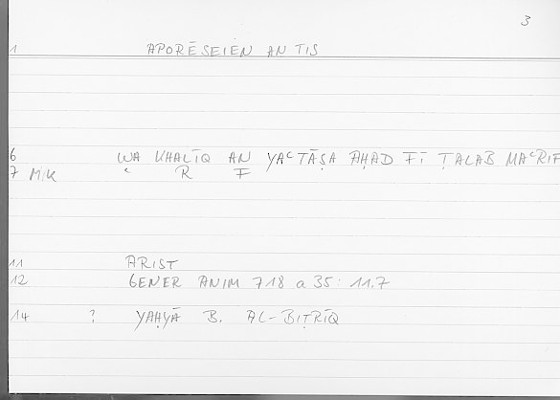 3
1 APORĒSEIEN AN TIS
6 WA KHALĪQ AN YAʿTĀṢA AḤAD FĪ ṬALAB MAʿRIF
7 MIK ʿ R F
11 ARIST
12 GENER ANIM 718 a 35 : 11.7
14 ? YAḤYĀ B. AL-BIṬRĪQ